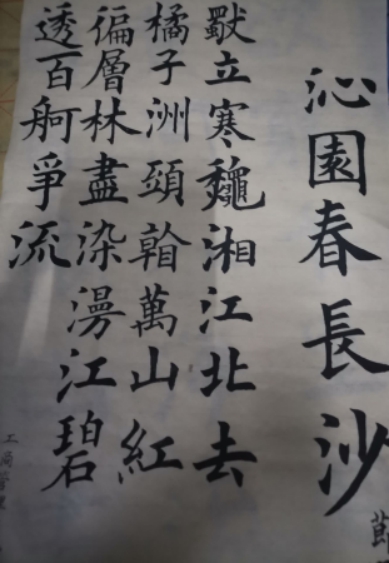 沁園春長沙
獸立寒龝湘江北去
橘子洲頭萬山紅
徧層林盡染漫江碧
透百舸爭流